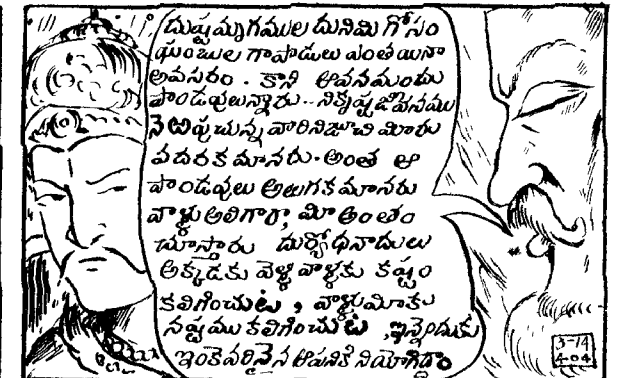 దుష్టమృగముల దునిమి గోసం
ఘంబుల గాపాడులు ఎంతయినా
అవసరం. కాని ఆవనమందు
పాండవులున్నారు.. నికృష్ట జీవనము
నెఱపుచున్న వారినిజూచి మీరు
వదరక మానరు. అంత ఆ
పాండవులు అలుగక మానరు
వాళ్లు అలిగారా, మీ అంతం
చూస్తారు దుర్యోధనాదులు
అక్కడకు వెళ్లి వాళ్లకు కష్టం
కలిగించుట, వాళ్లుమీకు
నష్టము కలిగించుట, ఇన్నెందుకు
ఇంకెవరినైన ఆపనికి నియోగిద్దాం
3-14
4-04